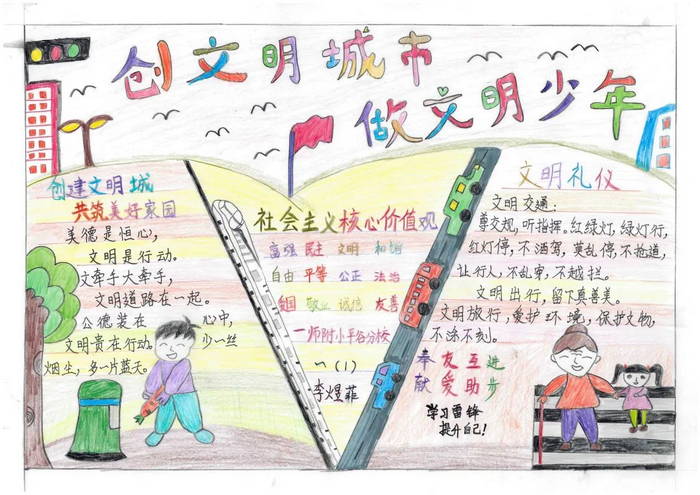 创文明城市
做文明少年
创建文明城
共筑美好家园
美德是恒心,
文明是行动。
文牵手大牵手,
文明道路在一起。
公德装在心中,
文明贵在行动。少一丝
烟尘,多一片蓝天。
社会主义核心价值观
富强 民主 文明 和谐
自由 平等 公正 法治
爱国 敬业 诚信 友善
一师附小平谷分校
一(1)
李煜菲
文明礼仪
文明交通:
尊交规,听指挥。红绿灯,绿灯行,
红灯停,不酒驾,莫乱停,不抢道,
让行人,不乱穿,不越拦。
文明出行,留下真善美。
文明旅行,爱护环境,保护文物,
不涂不刻。
奉献 友爱 互助 进步
学习雷锋
提升自己!